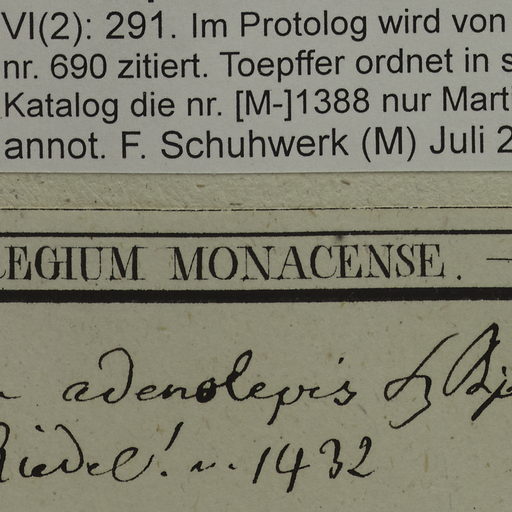 VI(2): 291. Im Protolog wird von
nr. 690 zitiert. Toepffer ordnet in s
Katalog die nr. [M-]1388 nur Mart
annot. F. Schuhwerk (M) Juli 2
EGIUM MONACENSE. —
adenolepis
Riedel! n. 1432